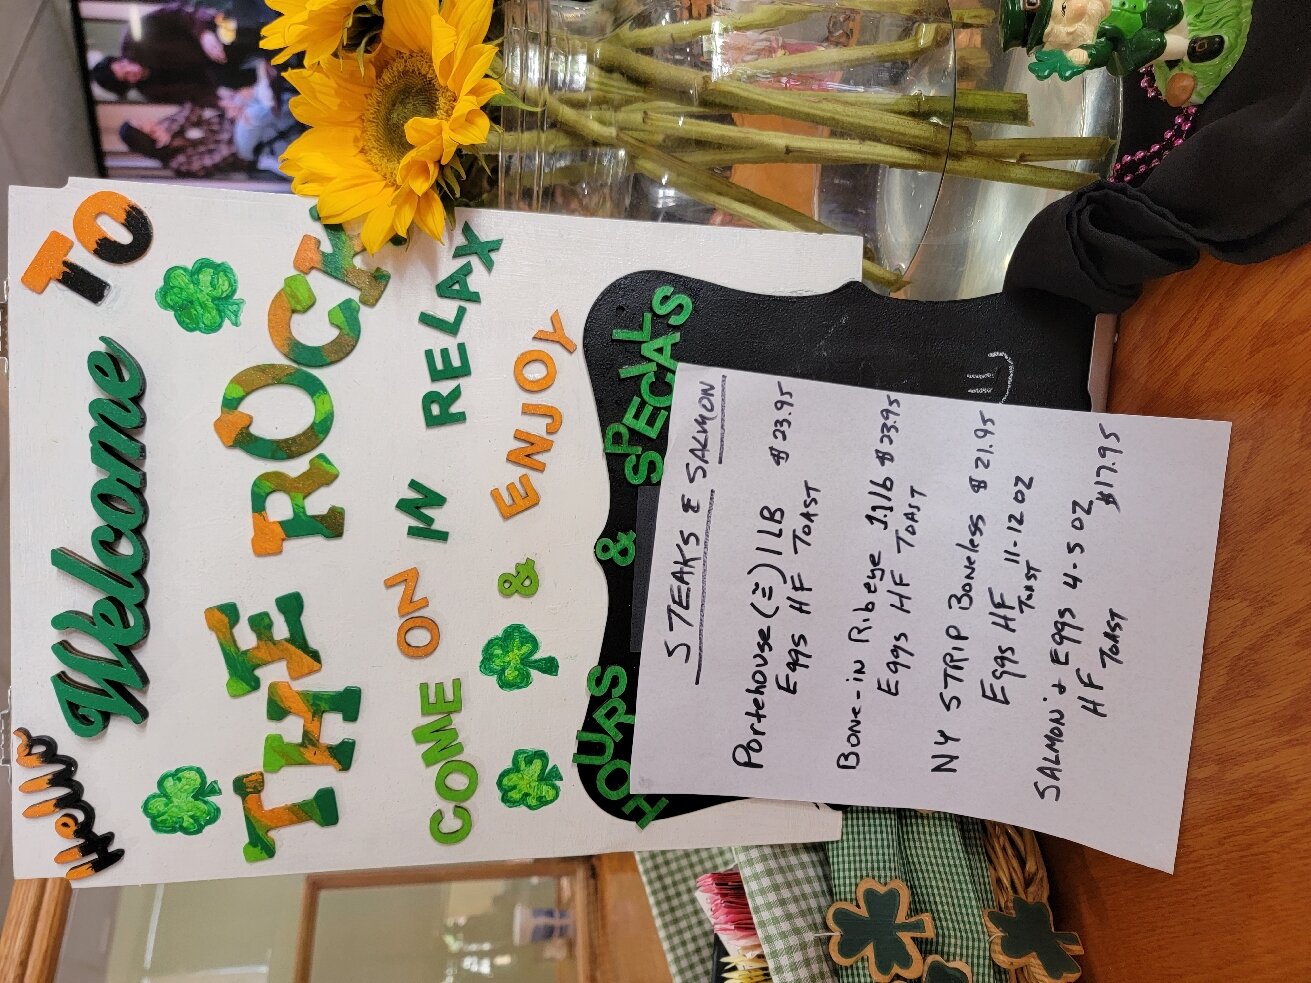 Howdy
Welcome TO
THE ROCK
COME ON IN RELAX
& ENJOY
HOURS & SPECIALS
STEAKS & SALMON
Portehouse (≅) 1 LB $23.95
Eggs HF TOAST
BONE-IN Ribeye 1 lb $23.95
Eggs HF TOAST
NY STRIP Boneless $21.95
Eggs HF 11-12 OZ
TOAST
SALMON + Eggs 4-5 OZ
HF TOAST $17.95